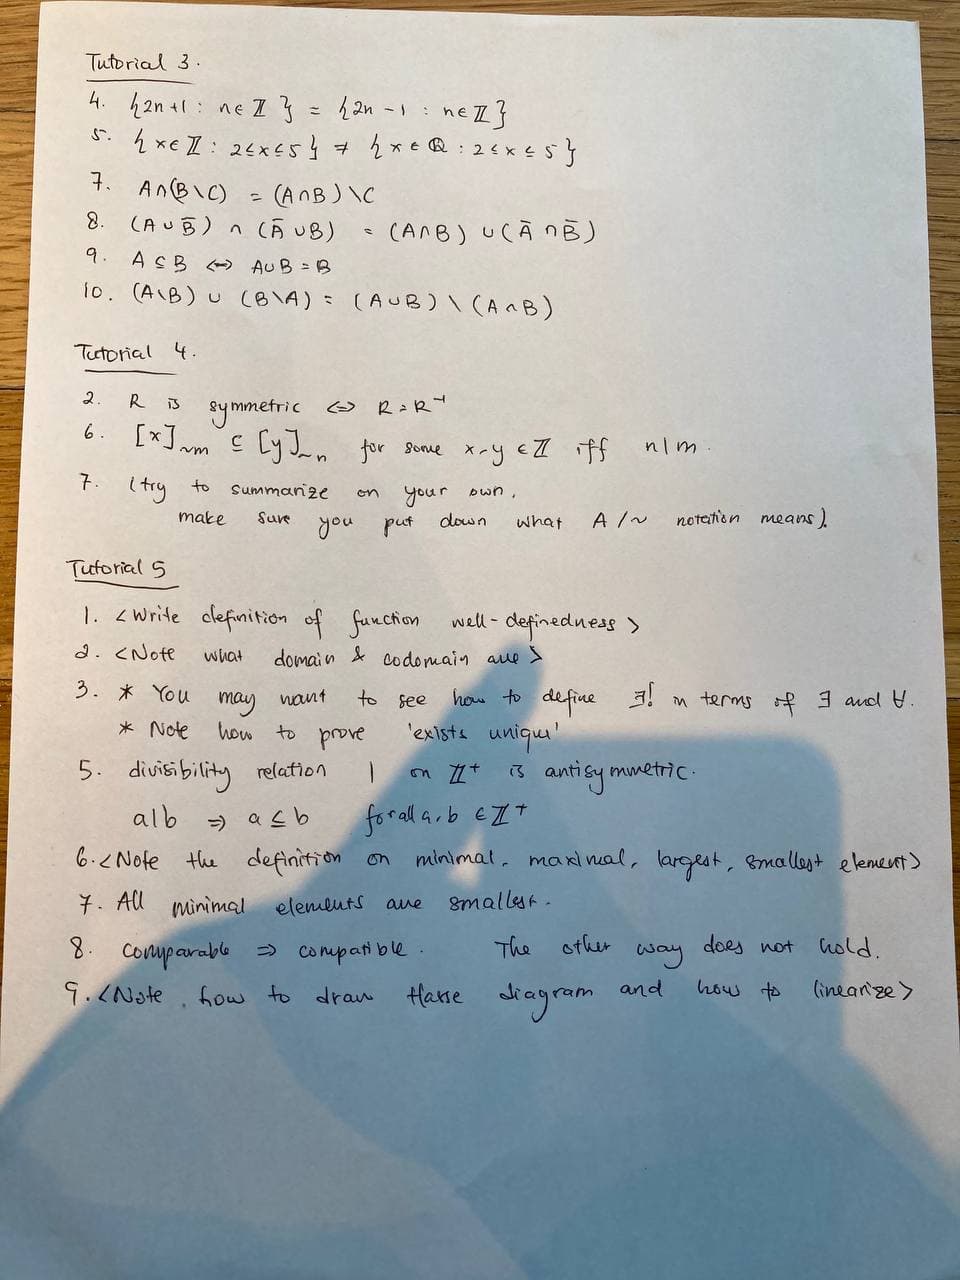 Tutorial 3.
4. {2n+1 : n ∈ ℤ} = {2n-1 : n ∈ ℤ}
5. {x ∈ ℤ : 2≤x≤5} ≠ {x ∈ ℚ : 2≤x≤5}
7. A∩(B\C) = (A∩B)\C
8. (A∪B̄) ∩ (Ā∪B) = (A∩B) ∪ (Ā∩B̄)
9. A⊆B ⇔ A∪B=B
10. (A\B) ∪ (B\A) = (A∪B) \ (A∩B)
Tutorial 4.
2. R is symmetric ⇔ R=R⁻¹
6. [x]~m ⊆ [y]~n for some x,y ∈ ℤ iff n|m.
7. (try to summarize on your own,
make sure you put down what A/~ notation means).
Tutorial 5
1. <Write definition of function well-definedness>
2. <Note what domain & codomain are>
3. * You may want to see how to define ∃! in terms of ∃ and ∀.
* Note how to prove 'exists unique'
5. divisibility relation | on ℤ⁺ is antisymmetric.
a|b ⇒ a≤b for all a,b ∈ ℤ⁺
6. <Note the definition on minimal, maximal, largest, smallest element>
7. All minimal elements are smallest.
8. comparable ⇒ compatible. The other way does not hold.
9. <Note how to draw Hasse diagram and how to linearize>